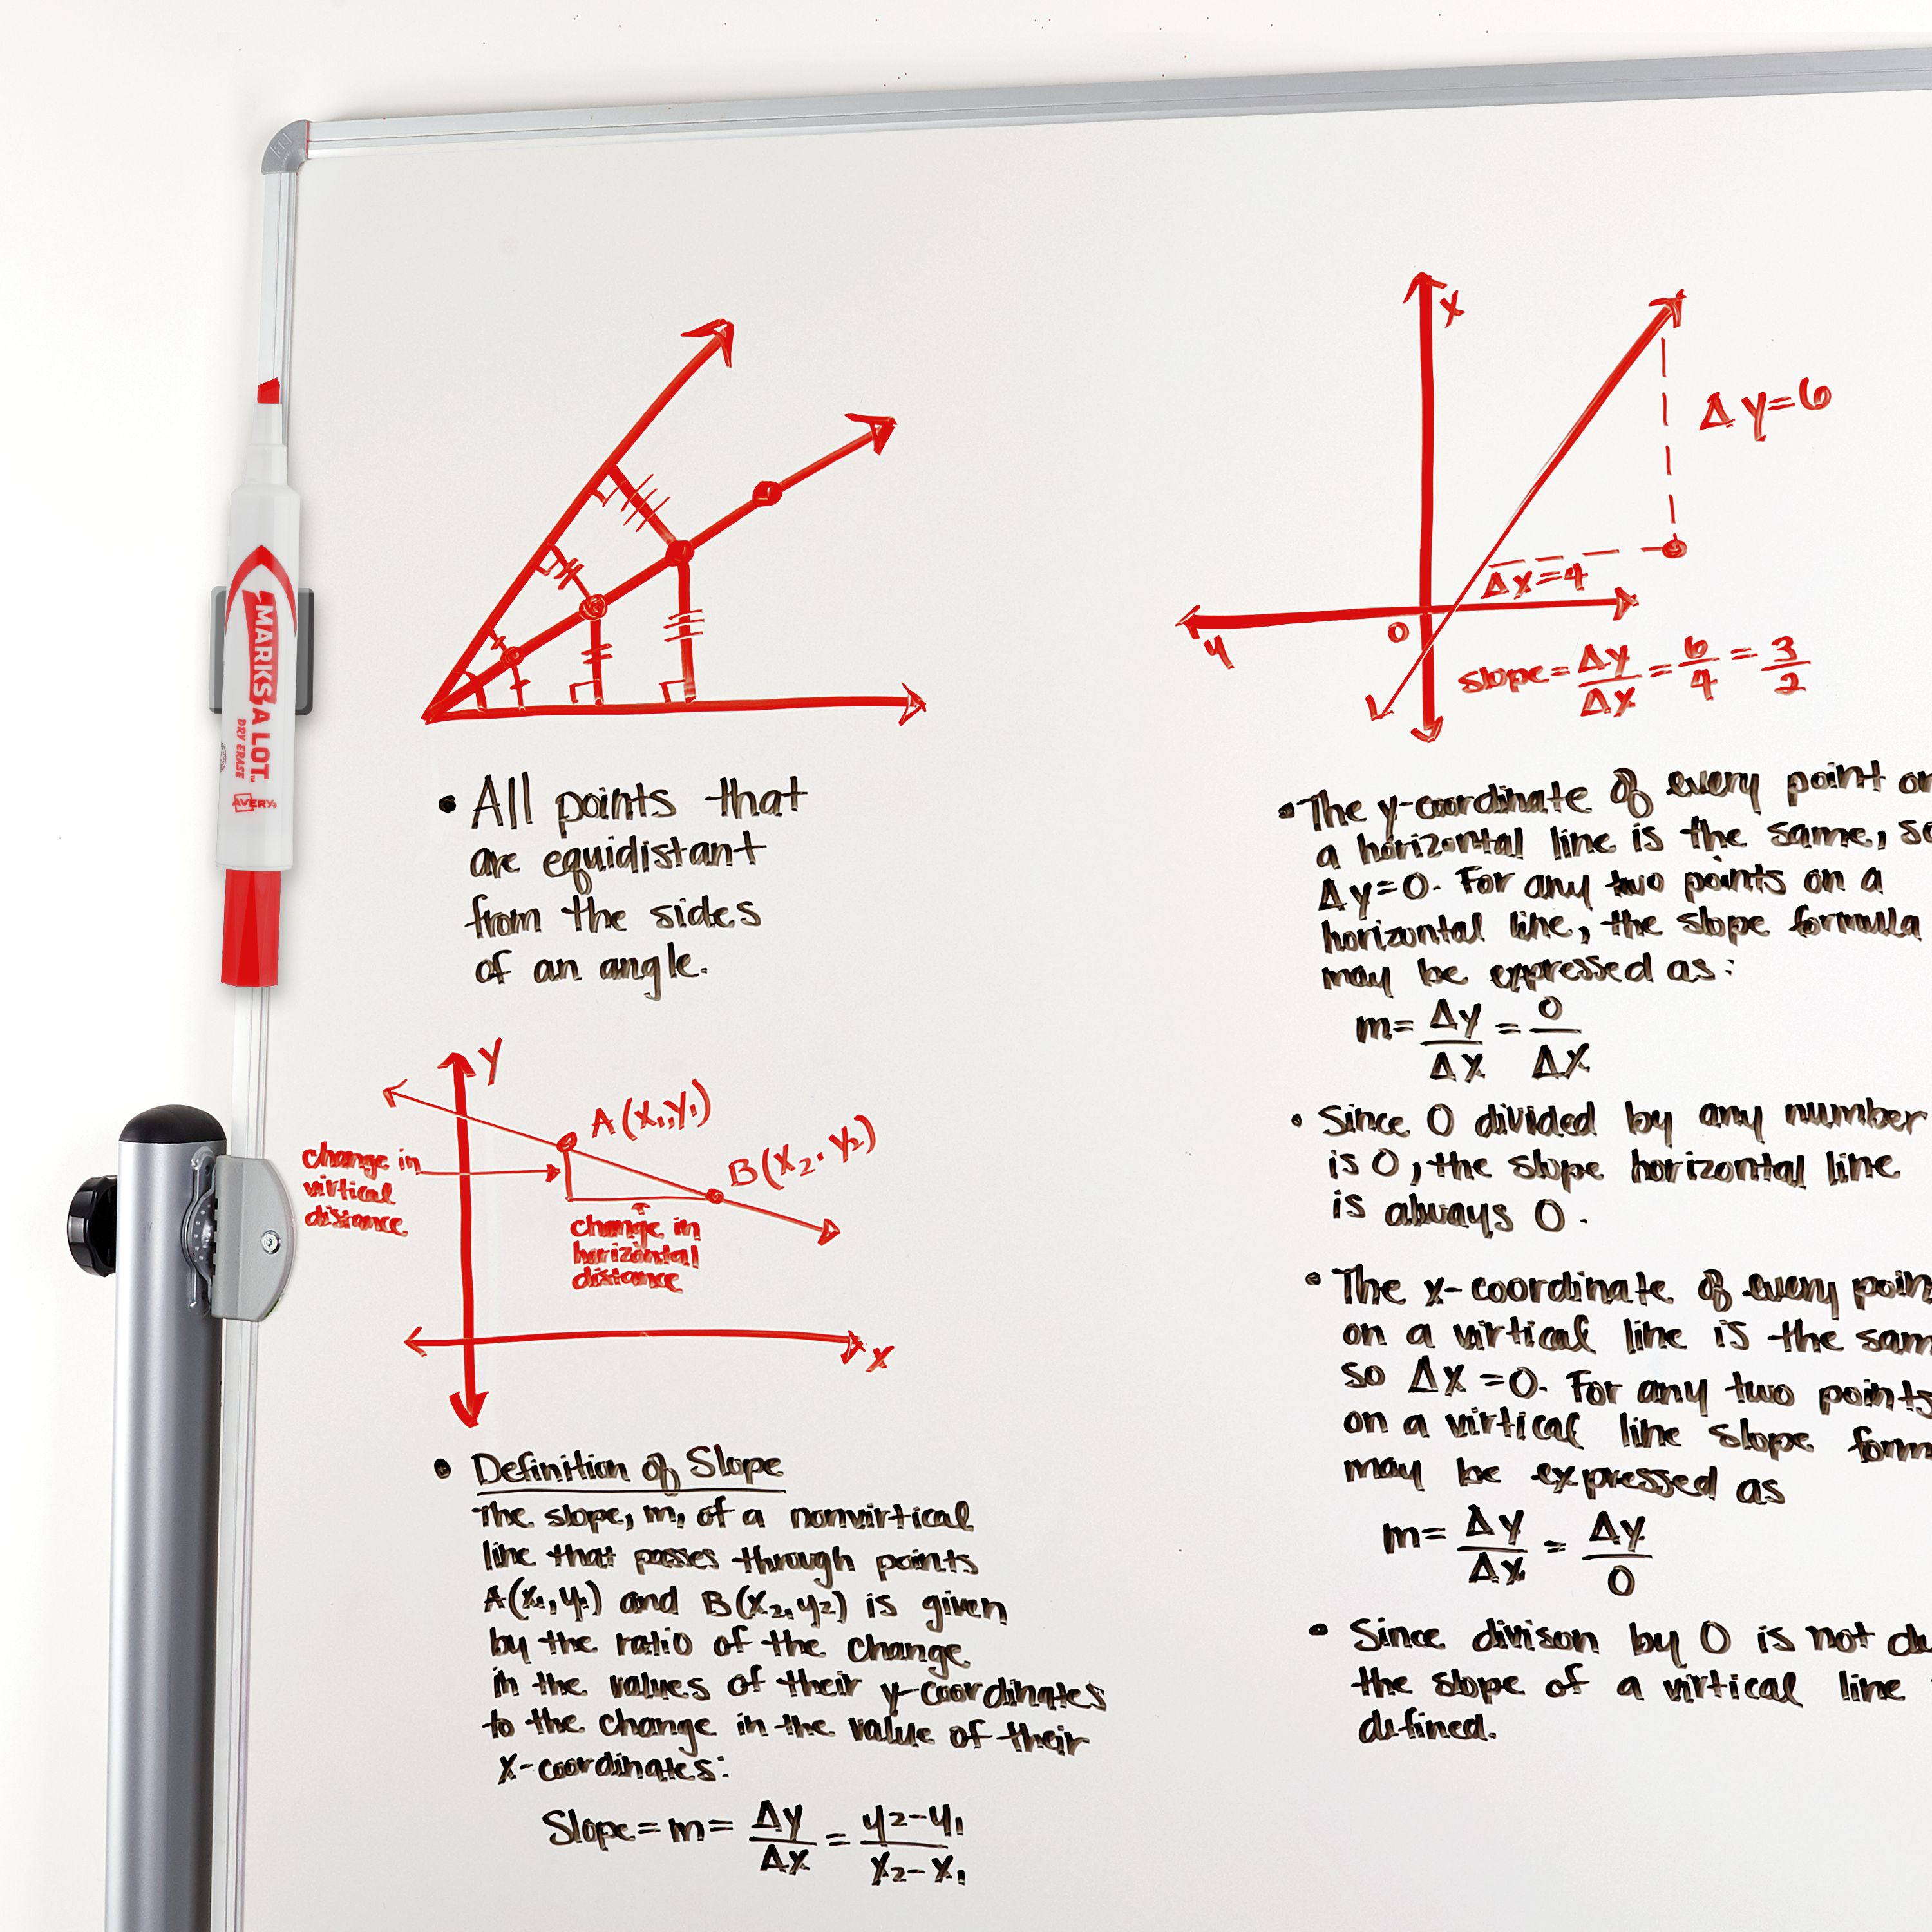 MARKS A LOT
DRY ERASE
AVERY
• All points that
are equidistant
from the sides
of an angle.
Y
A(x₁,y₁)
B(x₂, y₂)
change in
virtical
distance
change in
horizontal
distance
X
• Definition of Slope
The slope, m, of a nonvirtical
line that passes through points
A(x₁,y₁) and B(x₂,y₂) is given
by the ratio of the change
in the values of their y-coordinates
to the change in the value of their
X-coordinates:
Slope = m = Δy/Δx = y₂-y₁/x₂-x₁
X
Δy=6
Δx=4
y
0
slope = Δy/Δx = 6/4 = 3/2
• The y-coordinate of every point on
a horizontal line is the same, so
Δy=0. For any two points on a
horizontal line, the slope formula
may be expressed as:
m= Δy/Δx = 0/Δx
• Since 0 divided by any number
is 0, the slope horizontal line
is always 0.
• The x-coordinate of every poin
on a virtical line is the sam
so Δx=0. For any two points
on a virtical line slope form
may be expressed as
m= Δy/Δx = Δy/0
• Since divison by 0 is not de
the slope of a virtical line
defined.